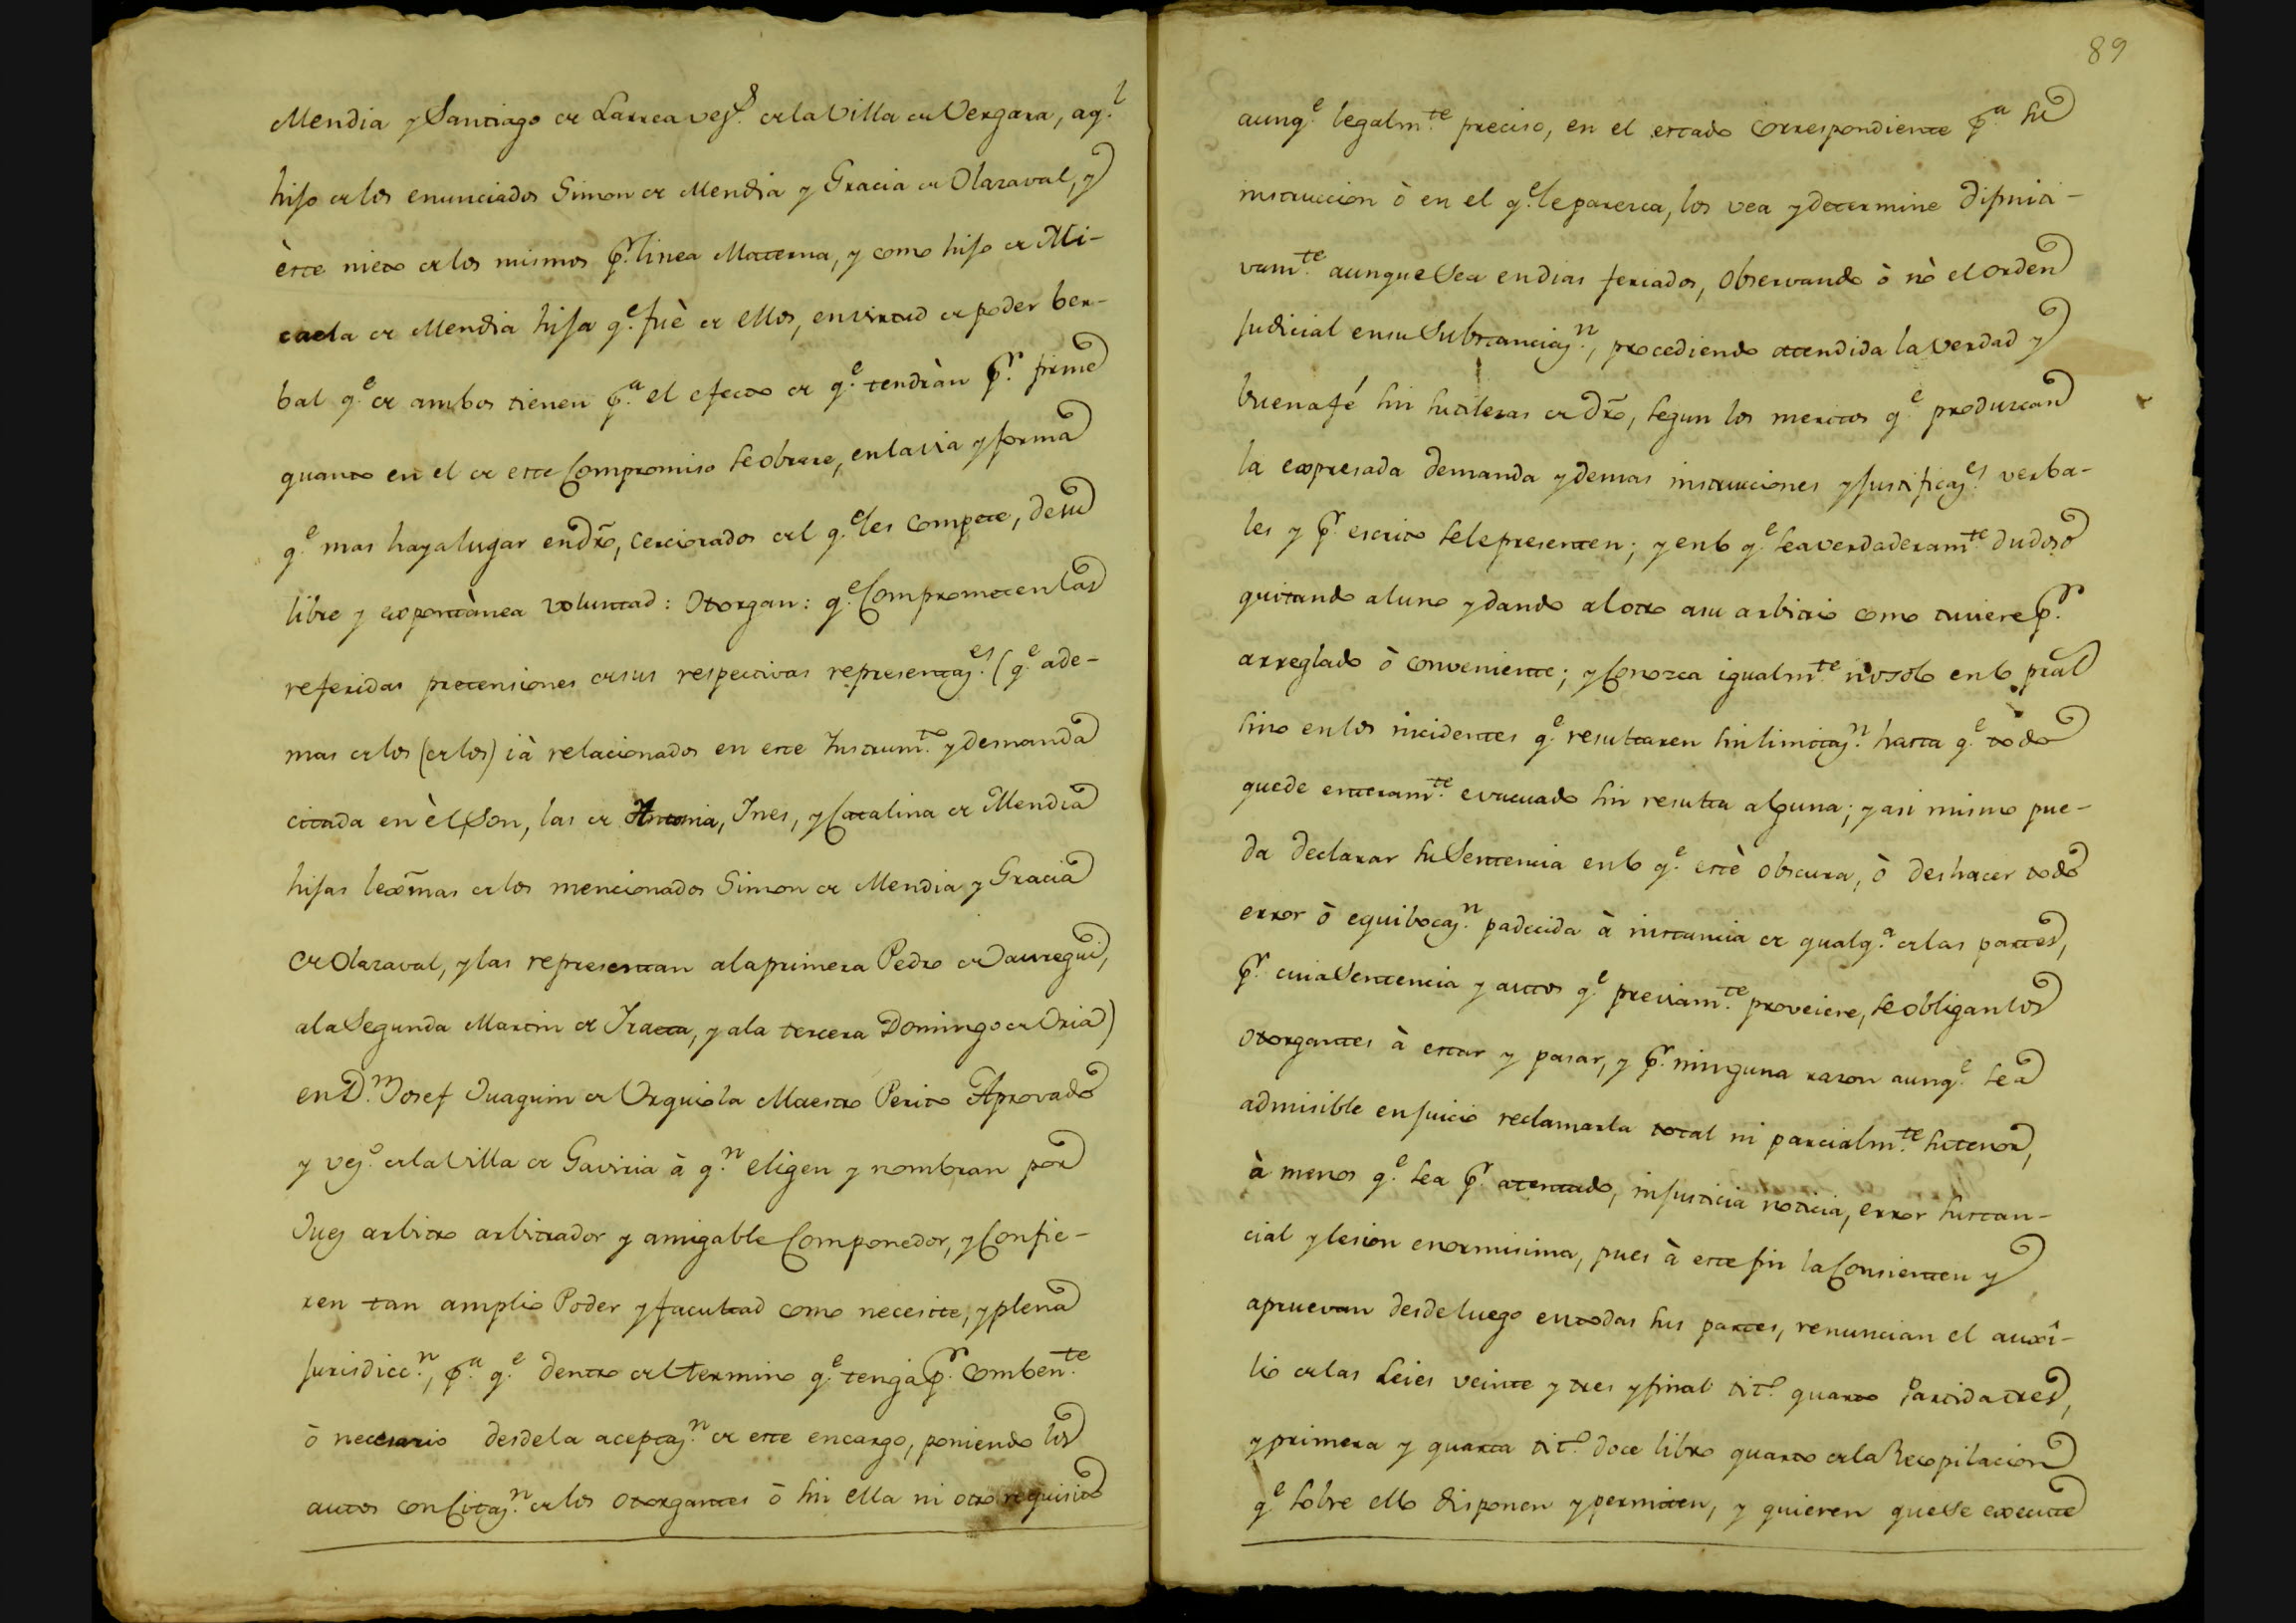 Mendia y Santiago de Larrea vez.s de la Villa de Vergara, aq.l
hijo de los enunciados Simon de Mendia y Gracia de Olazaval, y
èste nieto de los mismos p.r linea Materna, y como hijo de Mi-
caela de Mendia hija q.e fuè de ellos, en virtud de poder ber-
bal q.e de ambos tienen p.a el efecto de q.e tendràn p.r firme
quanto en el de este Compromiso se obrare, en la via y forma
q.e mas haya lugar en dr̃o, cerciorados del q.e les compete, de su
libre y expontànea voluntad: Otorgan: q.e Comprometen las
referidas pretensiones de sus respectivas representaz.es (q.e ade-
mas de los (de los) ià relacionados en este Instrum.to y demanda
citada en èl, son, las de Antonia, Ines, y Catalina de Mendia
hijas lexm̃as de los mencionados Simon de Mendia y Gracia
de Olazaval, y las representan a la primera Pedro de Jauregui,
a la Segunda Martin de Iraeta, y a la tercera Domingo de Oria)
en D.n Josef Juaquin de Urquiola Maestro Perito Aprovado
y vez.o de la Villa de Gaviria à q.n eligen y nombran por
Juez arbitro arbitrador y amigable Componedor, y Confie-
ren tan amplio Poder y facultad como necesite, y plena
jurisdicc.n, p.a q.e dentro del termino q.e tenga p.r comben.te
ò necesario desde la aceptaz.n de este encargo, poniendo los
autos con Citaz.n de los otorgantes ò sin ella ni otro requisito
89
aunq.e legalm.te preciso, en el estado correspondiente p.a su
instruccion ò en el q.e le paresca, los vea y determine difinia-
vam.te aunque sea en dias feriados, observando ò nò el orden
judicial en su Substanciaz.n, procediendo atendida la verdad y
buena fé sin sutilezas de dr̃o, segun los meritos q.e produzcan
la expresada demanda y demas instrucciones y justificaz.es verba-
les y p.r escrito se le presenten; y en lo q.e sea verdaderam.te dudoso
quitando al uno y dando al otro a su arbitrio como tuviere p.r
arreglado ò conveniente; y Conozca igualm.te nò solo en lo pral
sino en los incidentes q.e resultaren sin limitaz.n hasta q.e todo
quede enteram.te evacuado sin resulta alguna; y asi mismo pue-
da declarar su Sentencia en lo q.e estè obscura, ò deshacer todo
error ò equibocaz.n padecida à instancia de qualq.a de las partes,
p.r cuia Sentencia y autos q.e previam.te proveiere, se obligan los
otorgantes à estar y pasar, y p.r ninguna razon aunq.e sea
admisible en juicio reclamarla total ni parcialm.te su tenor,
à menos q.e sea p.r atentado, injusticia noticia, error sustan-
cial y lesion enormisima, pues à este fin la Consienten y
apruevan desde luego en todas sus partes, renuncian el auxî-
lio de las Leies veinte y tres y final tit.o quarto Partida tres,
y primera y quarta tit.o doce libro quarto de la Recopilacion
q.e sobre ello disponen y permiten, y quieren que se execute